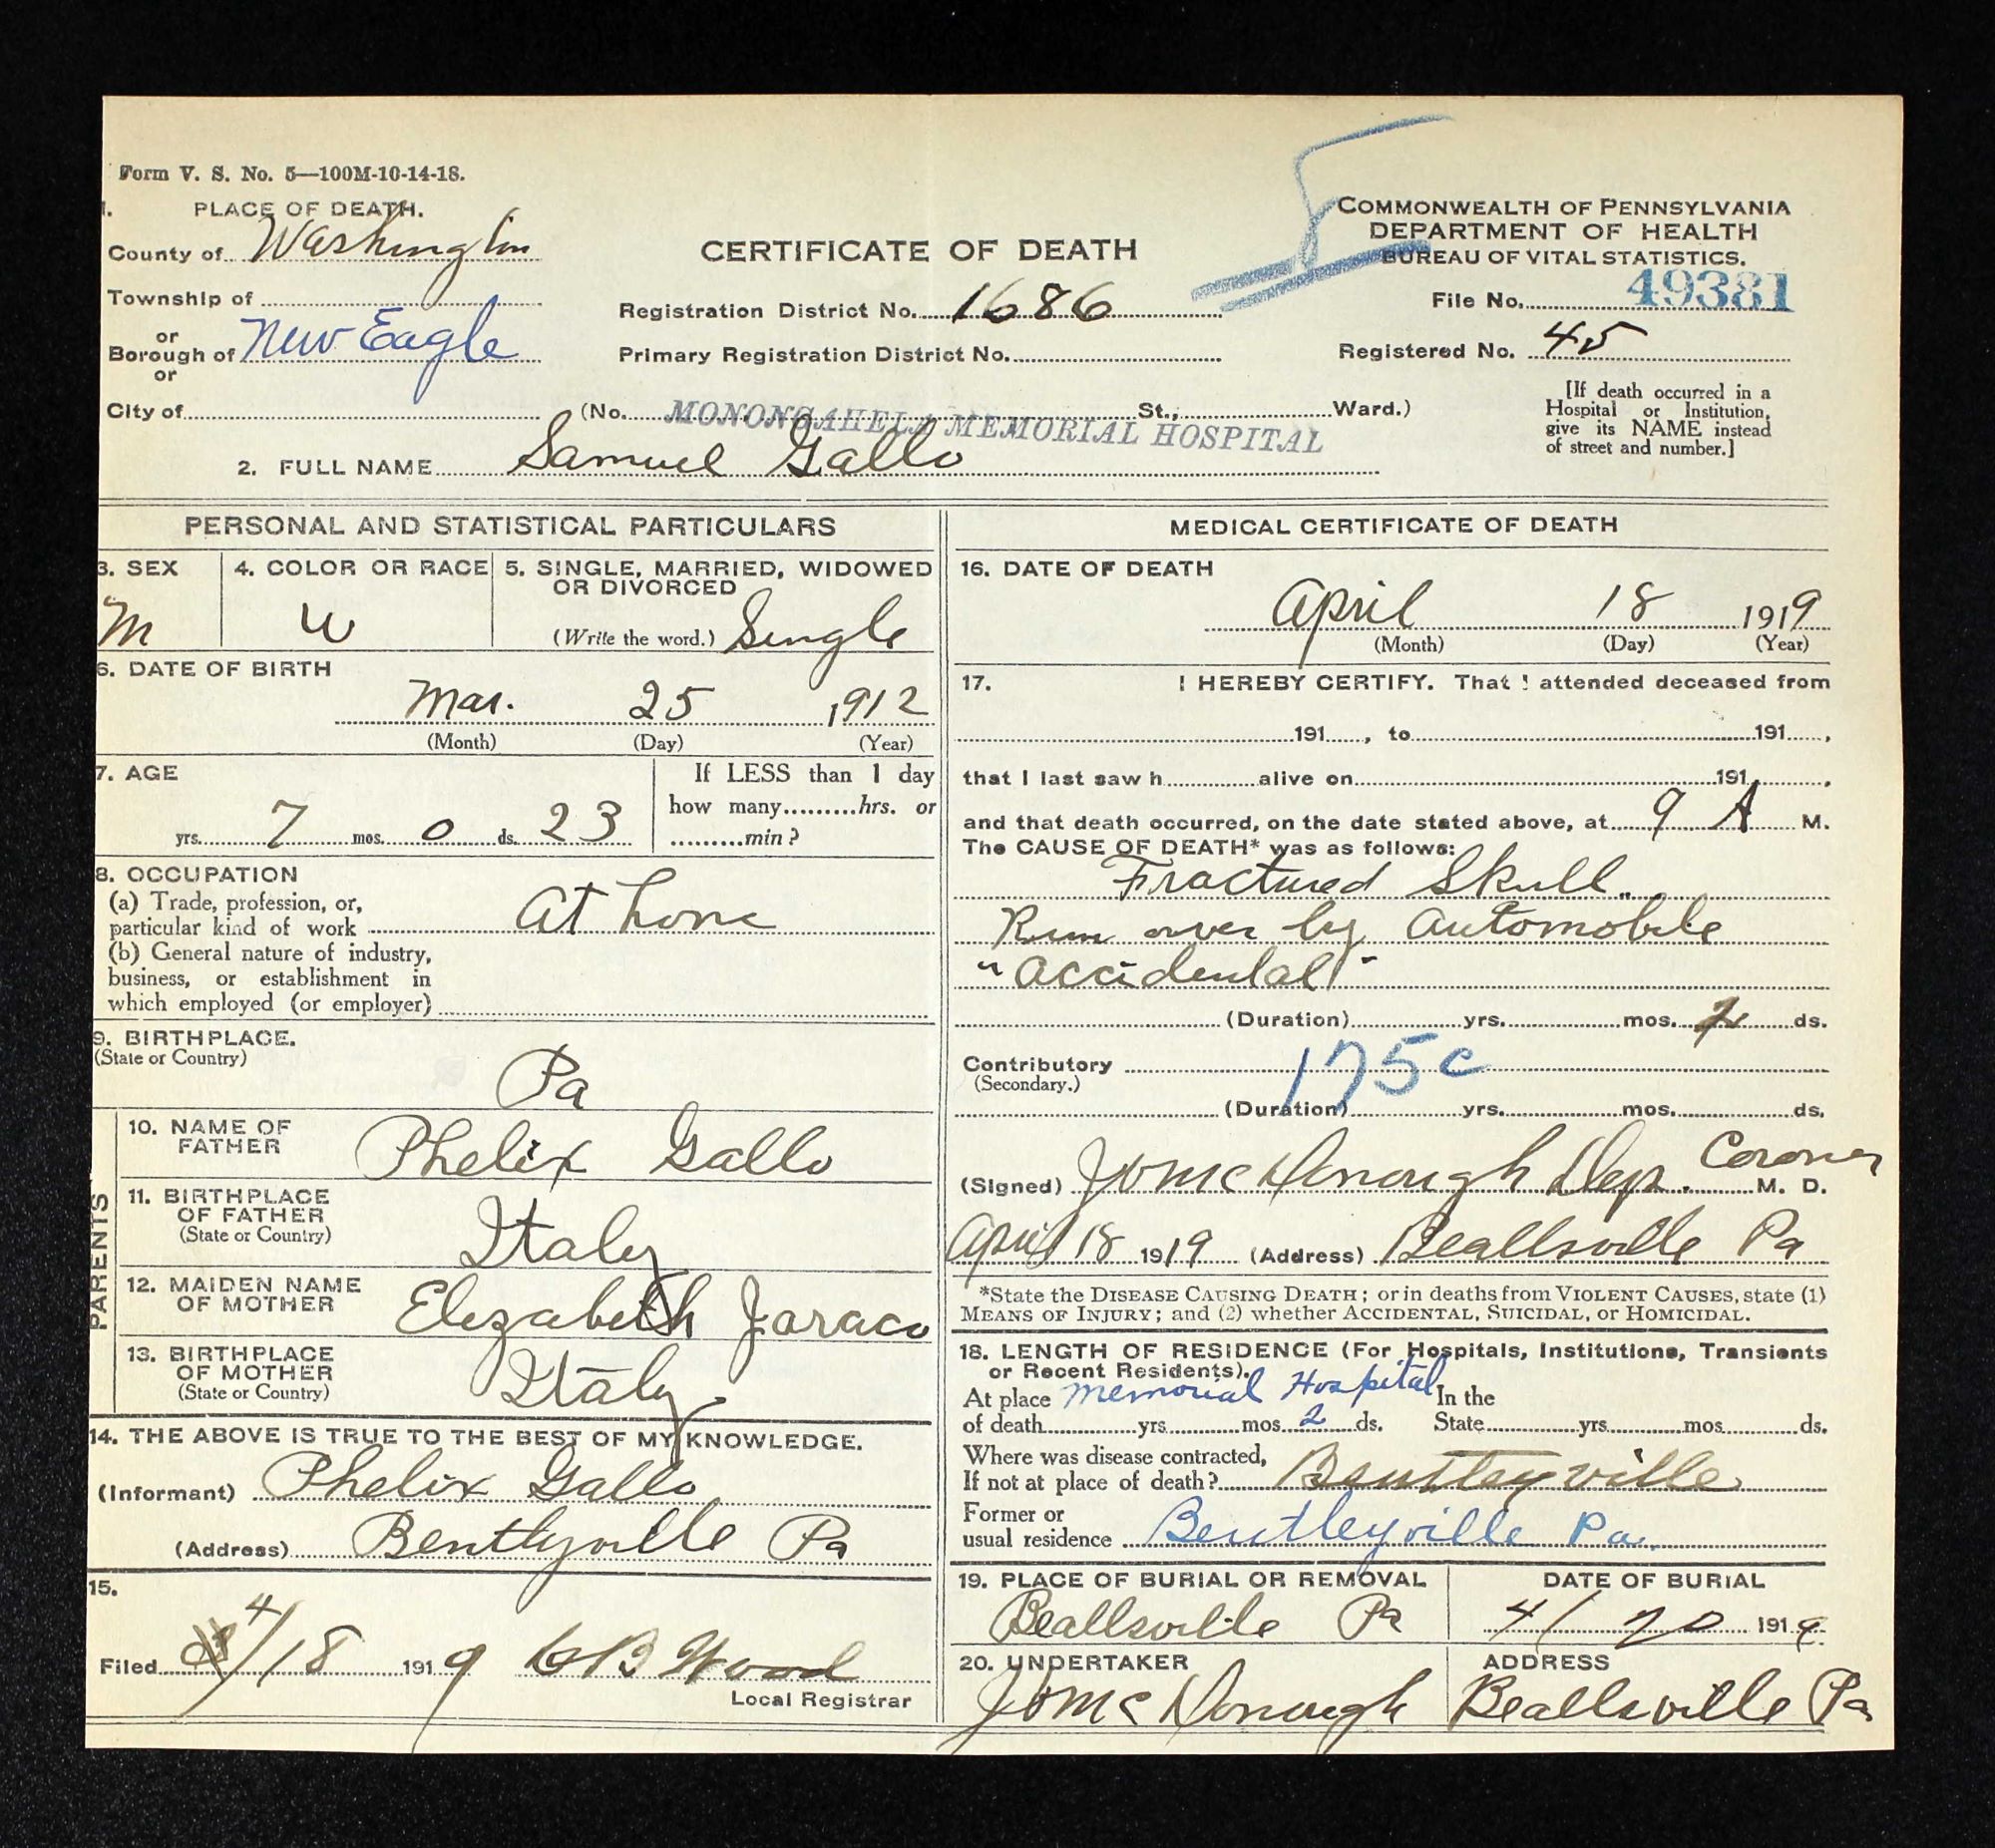 Form V. S. No. 5—100M-10-14-18.
1. PLACE OF DEATH.
County of Washington
Township of
or
Borough of New Eagle
or
City of
CERTIFICATE OF DEATH
Registration District No. 1686
Primary Registration District No.
(No. MONONGAHELA MEMORIAL HOSPITAL St., Ward.)
COMMONWEALTH OF PENNSYLVANIA
DEPARTMENT OF HEALTH
BUREAU OF VITAL STATISTICS.
File No. 49381
Registered No. 45
[If death occurred in a
Hospital or Institution,
give its NAME instead
of street and number.]
2. FULL NAME Samuel Gallo
PERSONAL AND STATISTICAL PARTICULARS
3. SEX
M
4. COLOR OR RACE
W
5. SINGLE, MARRIED, WIDOWED
OR DIVORCED
(Write the word.) Single
6. DATE OF BIRTH
Mar. 25 1912
(Month) (Day) (Year)
7. AGE
yrs. 7 mos. 0 ds. 23
If LESS than 1 day
how many hrs. or
min?
8. OCCUPATION
(a) Trade, profession, or,
particular kind of work At home
(b) General nature of industry,
business, or establishment in
which employed (or employer)
9. BIRTHPLACE.
(State or Country)
Pa
PARENTS
10. NAME OF
FATHER Phelix Gallo
11. BIRTHPLACE
OF FATHER
(State or Country) Italy
12. MAIDEN NAME
OF MOTHER Elizabeth Jaraco
13. BIRTHPLACE
OF MOTHER
(State or Country) Italy
14. THE ABOVE IS TRUE TO THE BEST OF MY KNOWLEDGE.
(Informant) Phelix Gallo
(Address) Bentlyville Pa
15.
Filed 4/18 1919 Wood
Local Registrar
MEDICAL CERTIFICATE OF DEATH
16. DATE OF DEATH
April 18 1919
(Month) (Day) (Year)
17. I HEREBY CERTIFY. That I attended deceased from
191 , to 191 ,
that I last saw h alive on 191 ,
and that death occurred, on the date stated above, at 9 A M.
The CAUSE OF DEATH* was as follows:
Fractured Skull
Run over by Automobile
"Accidental"
(Duration) yrs. mos. 2 ds.
Contributory 175c
(Secondary.)
(Duration) yrs. mos. ds.
(Signed) McDonough Dep. Coroner M. D.
April 18 1919 (Address) Beallsville Pa
*State the DISEASE CAUSING DEATH; or in deaths from VIOLENT CAUSES, state (1)
MEANS OF INJURY; and (2) whether ACCIDENTAL, SUICIDAL, or HOMICIDAL.
18. LENGTH OF RESIDENCE (For Hospitals, Institutions, Transients
or Recent Residents).
At place Memorial Hospital In the
of death yrs. mos. 2 ds. State yrs. mos. ds.
Where was disease contracted,
If not at place of death? Bentleyville
Former or
usual residence Bentleyville Pa.
19. PLACE OF BURIAL OR REMOVAL
Beallsville Pa
DATE OF BURIAL
4/20 1919
20. UNDERTAKER
McDonough
ADDRESS
Beallsville Pa